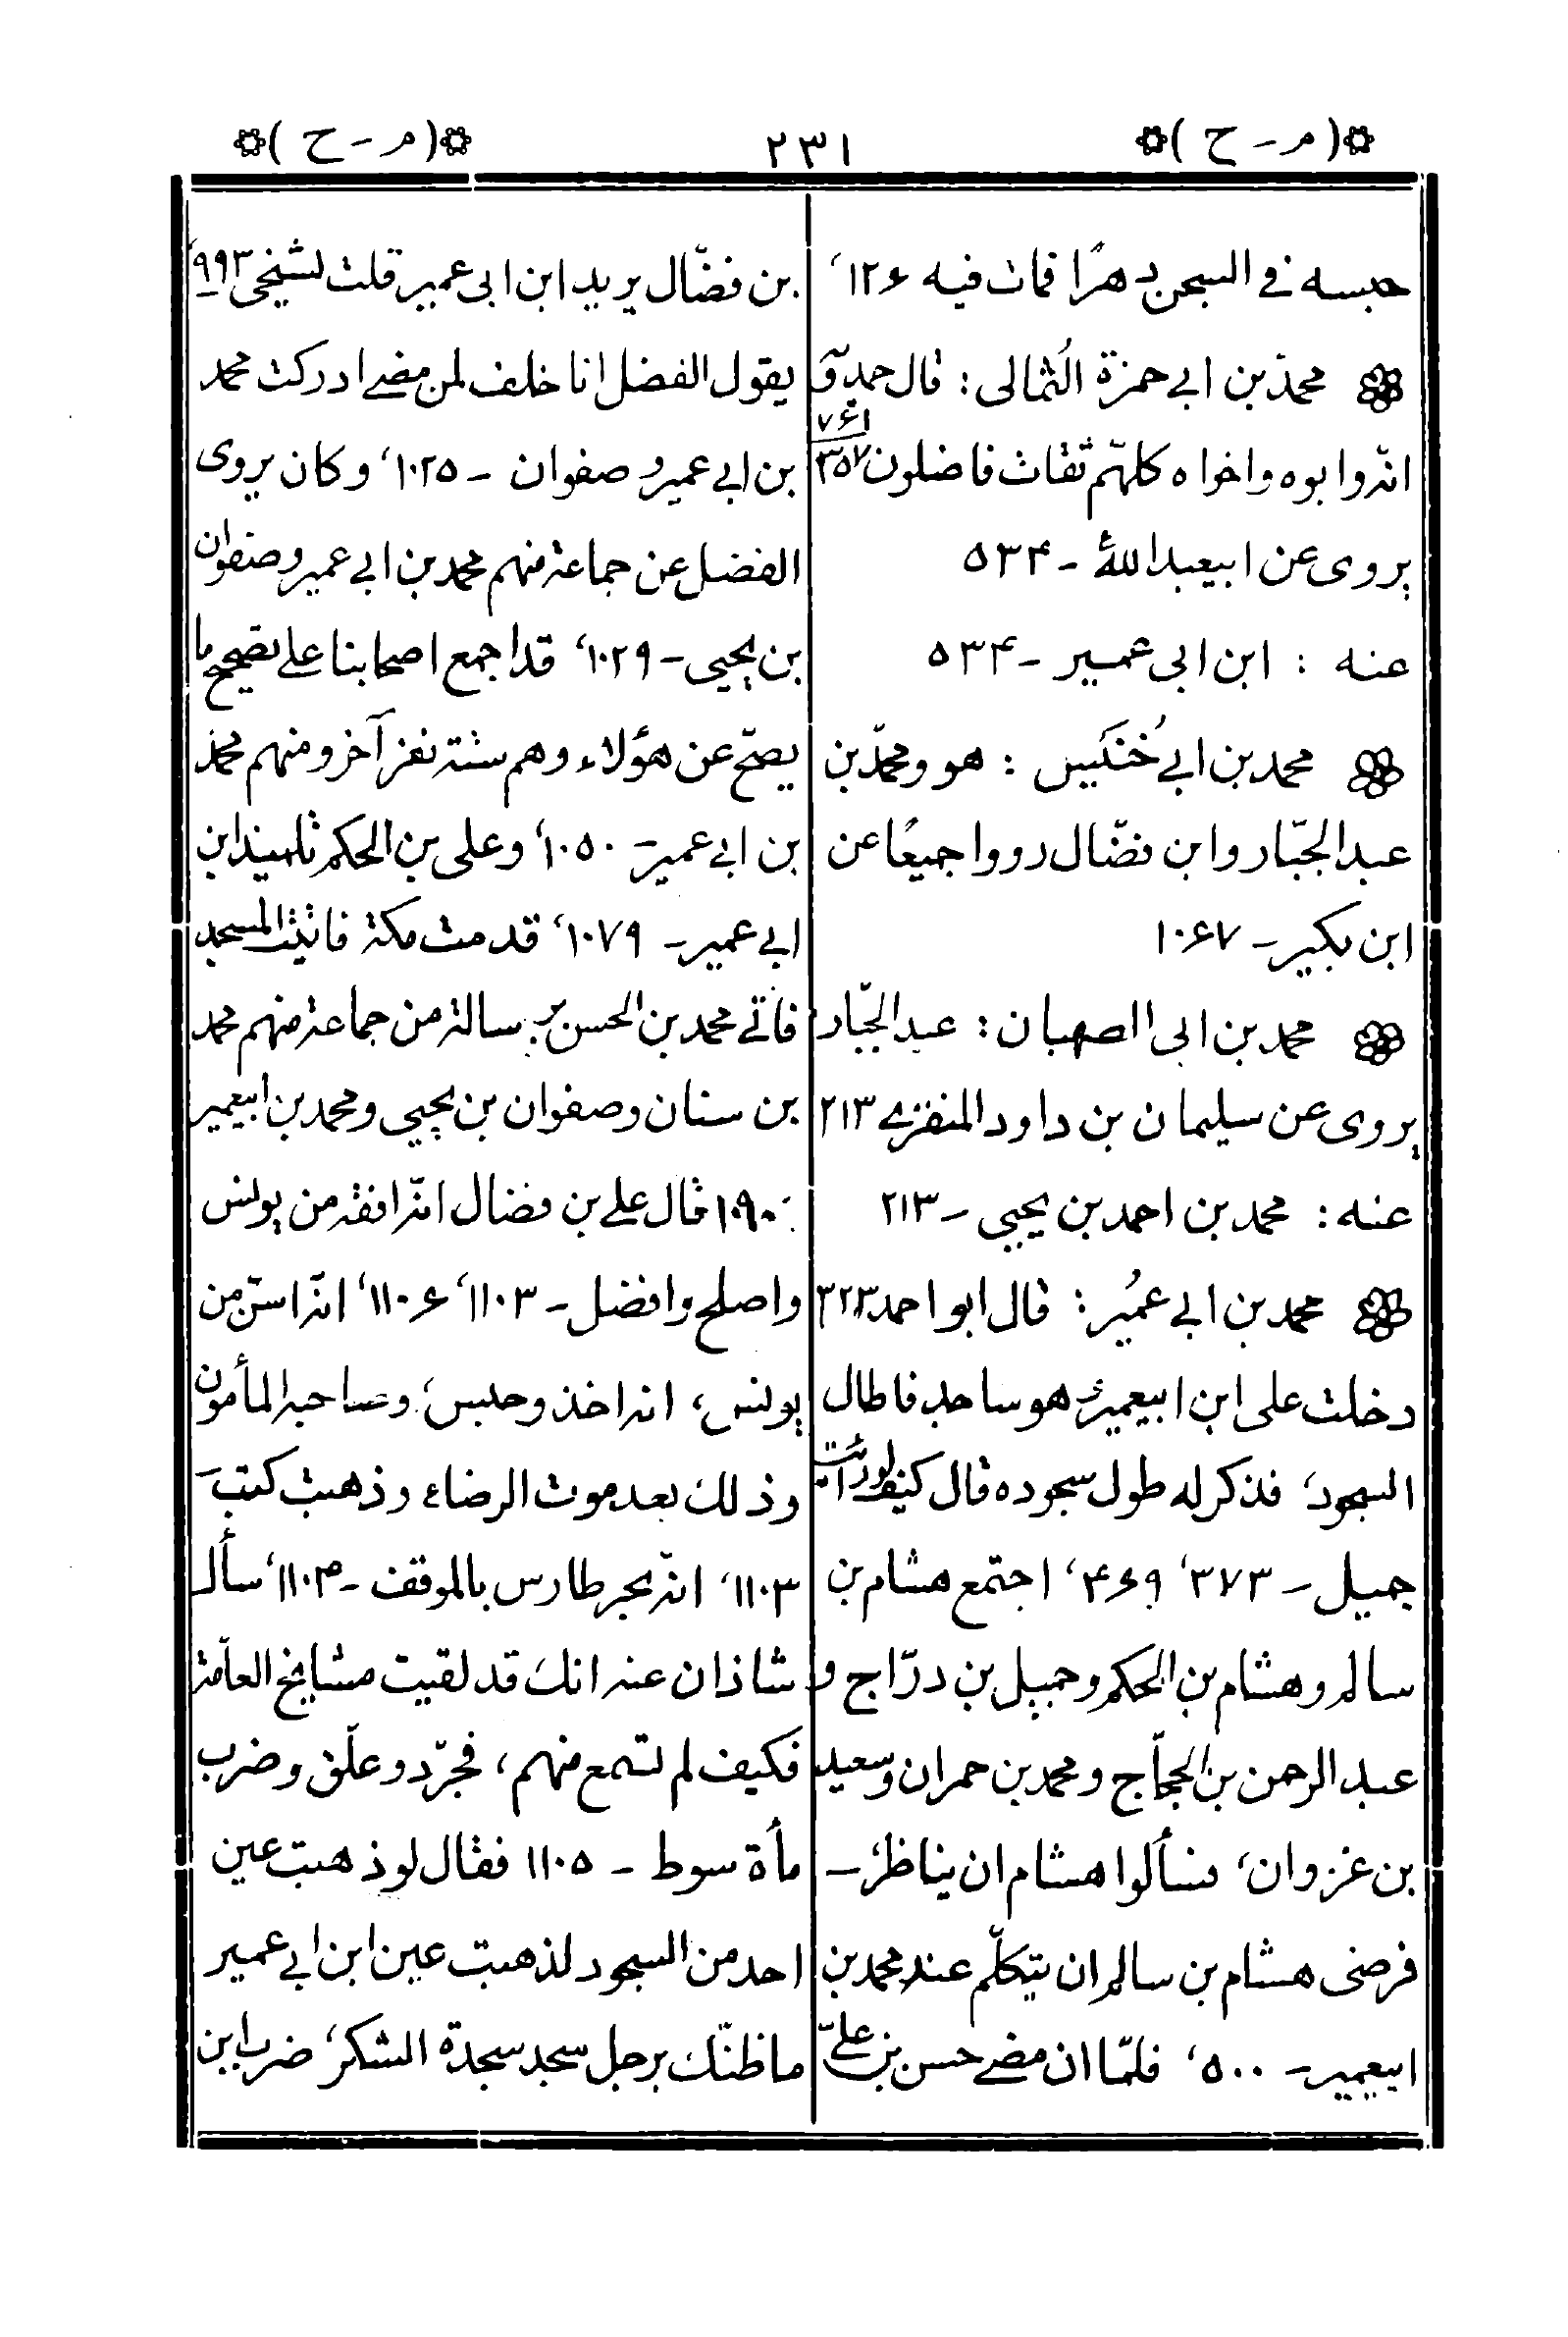 ❁( م - ح )❁ ٢٣١ ❁( م - ح )❁
حبسه في السجن دهرًا فمات فيه ١٢۶،
محمد بن ابي حمزة الثُمالى : قال حمدويه
انّه وابوه واخواه كلهّم ثقات فاضلون ٣۵٧ ٧۶١
يروى عن ابيعبدالله ع - ۵٣۴
عنه : ابن ابى عمير - ۵٣۴
محمد بن ابي خُنَيس : هو ومحمّد بن
عبد الجبّار وابن فضّال رووا جميعًا عن
ابن بكير - ١٠۶٧
محمد بن ابى الصهبان : عبد الجبّار
يروى عن سليمان بن داود المنقرى ٢١٣
عنه : محمد بن احمد بن يحيى - ٢١٣
محمد بن ابي عمُير : قال ابو احمد ٣٢٣
دخلت على ابن ابيعمير وهو ساجد فاطال
السجود، فذكر له طول سجوده قال كيف لو رأيت
جميل - ٣٧٣، ۴۶٩، اجتمع هشام بن
سالم وهشام بن الحكم وجميل بن درّاج و
عبد الرحمن بن الحجّاج ومحمد بن حمران وسعيد
بن غزوان، فسألوا هشام ان يناظر -
فرضى هشام بن سالم ان يتكلّم عند محمد بن
ابيعمير - ۵٠٠، فلمّا ان مضى حسن بن علىّ
بن فضّال يريد ابن ابى عمير قلت لشيخى ٩٩٣،
يقول الفضل انا خلف لمن مضى ادركت محمد
بن ابي عمير وصفوان - ١٠٢۵، وكان يروى
الفضل عن جماعة منهم محمد بن ابي عمير وصفوان
بن يحيى - ١٠٢٩، قد اجمع اصحابنا على تصحيح ما
يصحّ عن هؤلاء وهم ستة نفر آخر ومنهم محمد
بن ابي عمير - ١٠۵٠، وعلى بن الحكم تلميذ ابن
ابي عمير - ١٠٧٩، قدمت مكة فاتيت المسجد
فاتى محمد بن الحسن برسالة من جماعة منهم محمد
بن سنان وصفوان بن يحيى ومحمد بن ابيعمير
١٠٩٠ قال على بن فضال انّه افقه من يونس
واصلح وافضل - ١١٠٣، ١١٠۶، انّه اسنّ من
يونس، انه اخذ وحبس، وصاحبه المأمون
وذلك بعد موت الرضا ع وذهبت كتبه
١١٠٣، انّه بحر طارس بالموقف - ١١٠٣، سأل
شاذان عنه انك قد لقيت مشايخ العامّة
فكيف لم تسمع منهم، فجرّد وعلّق وضرب
مأة سوط - ١١٠۵ فقال لو ذهبت عين
احد من السجود لذهبت عين ابن ابي عمير
ما ظنّك برجل سجد سجدة الشكر، ضرب ابن